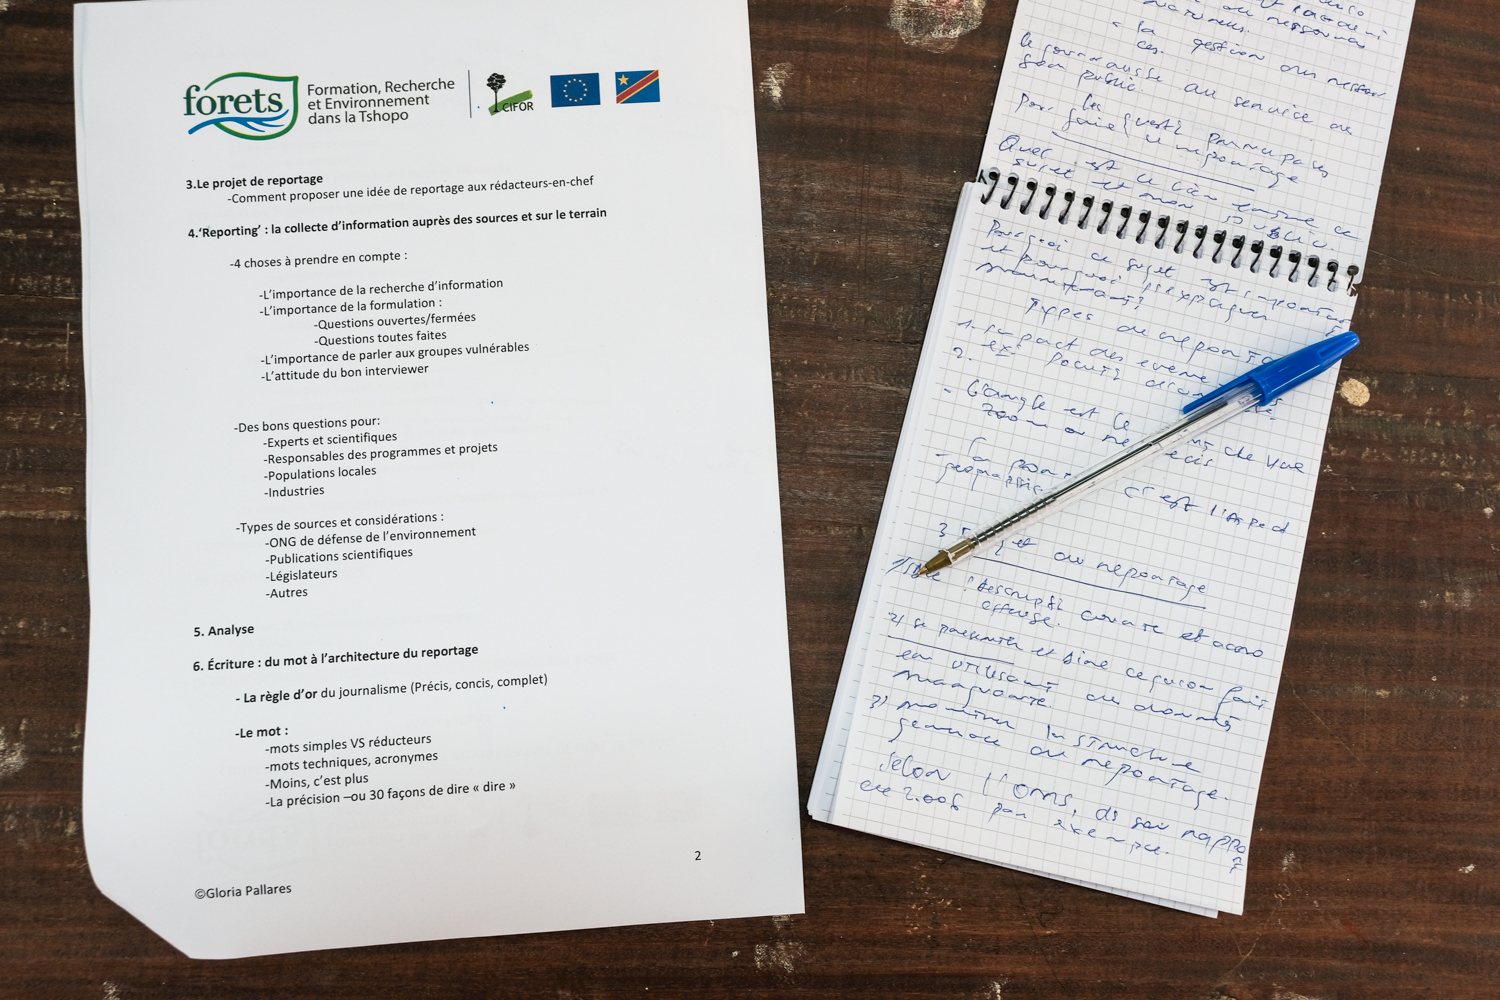 forets
Formation, Recherche
et Environnement
dans la Tshopo
CIFOR
3.Le projet de reportage
-Comment proposer une idée de reportage aux rédacteurs-en-chef
4.‘Reporting’ : la collecte d’information auprès des sources et sur le terrain
-4 choses à prendre en compte :
-L’importance de la recherche d’information
-L’importance de la formulation :
-Questions ouvertes/fermées
-Questions toutes faites
-L’importance de parler aux groupes vulnérables
-L’attitude du bon interviewer
-Des bons questions pour:
-Experts et scientifiques
-Responsables des programmes et projets
-Populations locales
-Industries
-Types de sources et considérations :
-ONG de défense de l’environnement
-Publications scientifiques
-Législateurs
-Autres
5. Analyse
6. Écriture : du mot à l’architecture du reportage
- La règle d’or du journalisme (Précis, concis, complet)
-Le mot :
-mots simples VS réducteurs
-mots techniques, acronymes
-Moins, c’est plus
-La précision –ou 30 façons de dire « dire »
2
©Gloria Pallares
- la gestion
au service de
son public.
Pour
faire le reportage
Quel est le lien entre ce
sujet et mon public.
Pourquoi ce sujet est important
et pourquoi l'expliquer
maintenant?
Types de reporta
1.
2. ex:
- L'angle est le de vue
zoom
-
géographique c'est l'Aspect
3 et du reportage
: descripti courte et accro
2) se présenter et dire ce qu'on fait
en utilisant
3) montrer la structure
du reportage.
Selon l'OMS, ds son rappo
de 2006 par exemple.